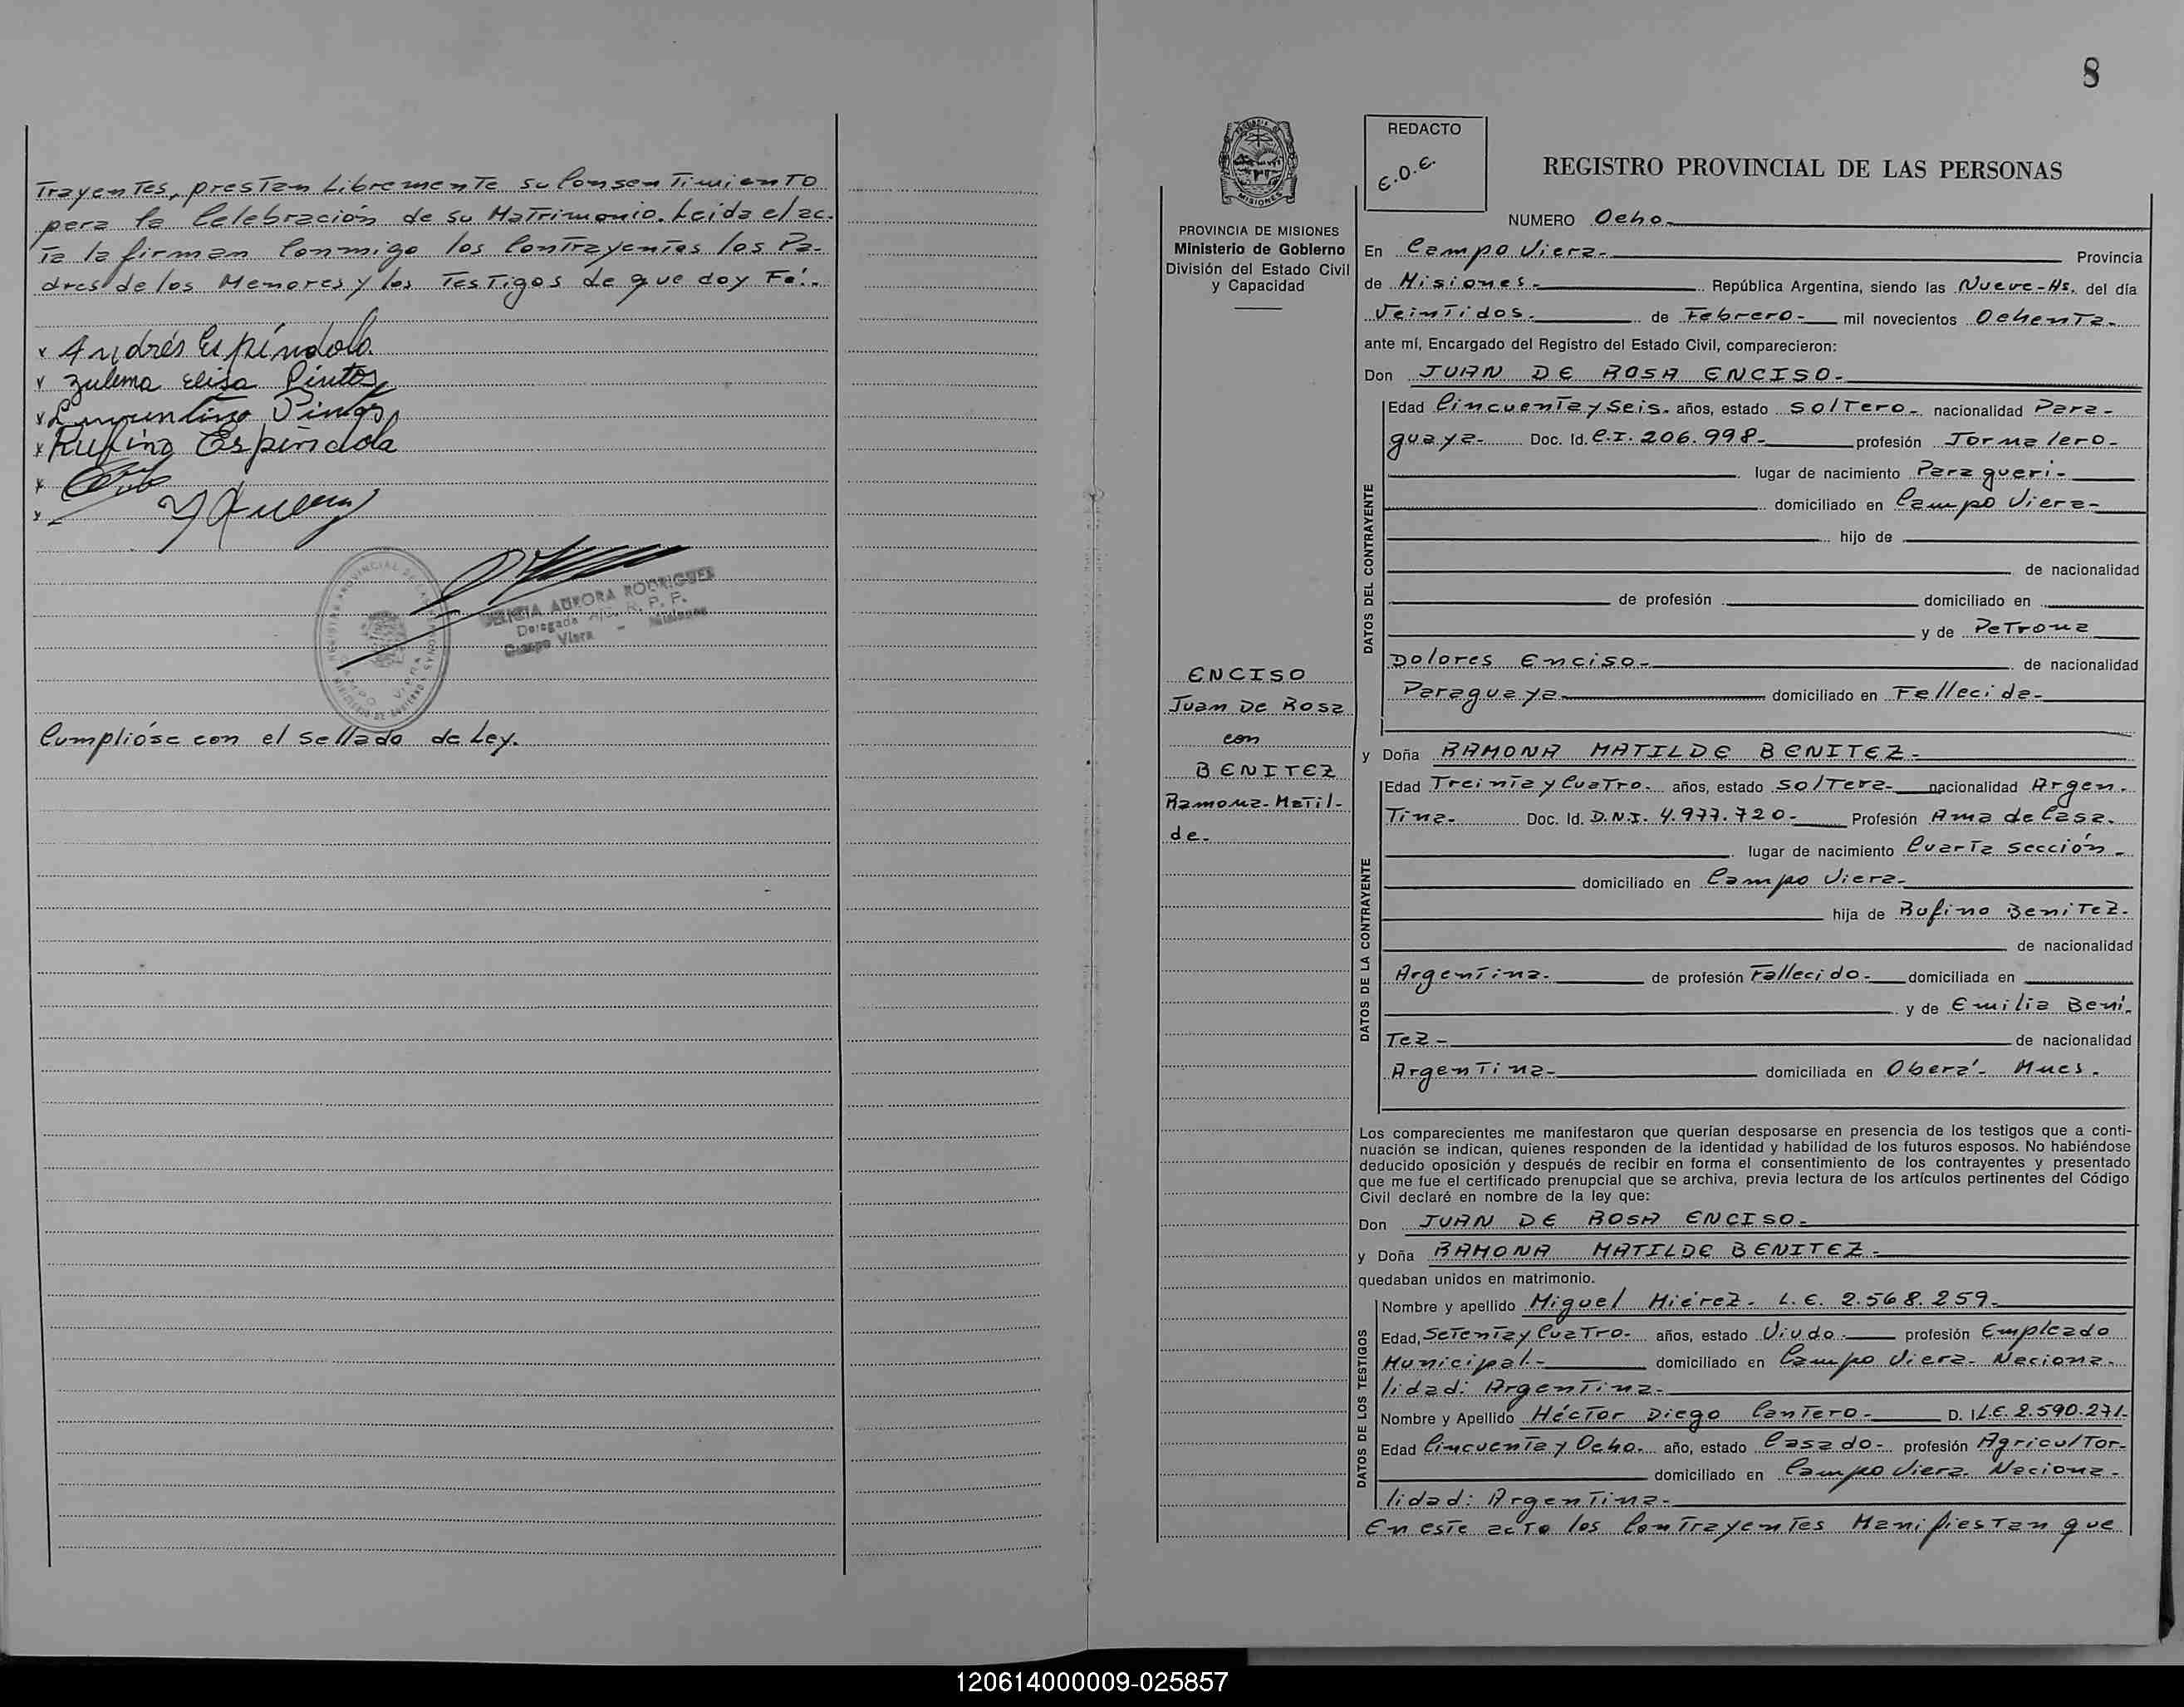 Trayentes, prestan Libremente su Consentimiento
para la Celebración de su Matrimonio. Leida el ac-
ta la firman Conmigo los Contrayentes los Pa-
dres de los Menores y los Testigos de que doy Fé.-
x Andrés Espíndola
x Zulema Elisa Pintos
x Pintos
x Rufino Espíndola
x
x
REGISTRO PROVINCIAL DE LAS PERSONAS
CAMPO VIERA
AURORA RODRIGUEZ
Delegada R. P. P.
Campo Viera - Misiones
Cumplióse con el sellado de Ley.
8
PROVINCIA DE MISIONES
Ministerio de Gobierno
División del Estado Civil
y Capacidad
ENCISO
Juan De Rosa
con
BENITEZ
Ramona-Matil-
de-
REDACTO
E.O.E.
REGISTRO PROVINCIAL DE LAS PERSONAS
NUMERO Ocho-
En Campo Viera- Provincia
de Misiones- República Argentina, siendo las Nueve-Hs. del día
Veintidos- de Febrero- mil novecientos Ochenta-
ante mí, Encargado del Registro del Estado Civil, comparecieron:
Don JUAN DE ROSA ENCISO-
DATOS DEL CONTRAYENTE
Edad Cincuenta y Seis- años, estado Soltero- nacionalidad Para-
guaya- Doc. Id. C.I. 206.998- profesión Jornalero-
lugar de nacimiento Paragueri-
domiciliado en Campo Viera-
hijo de
de nacionalidad
de profesión domiciliado en
y de Petrona
Dolores Enciso- de nacionalidad
Paraguaya- domiciliado en Fallecida-
y Doña RAMONA MATILDE BENITEZ-
DATOS DE LA CONTRAYENTE
Edad Treinta y Cuatro- años, estado Soltera- nacionalidad Argen-
Tina- Doc. Id. D.N.I. 4.977.720- Profesión Ama de Casa.
lugar de nacimiento Cuarta Sección-
domiciliado en Campo Viera-
hija de Rufino Benitez-
de nacionalidad
Argentina- de profesión Fallecido- domiciliada en
y de Emilia Beni-
Tez- de nacionalidad
Argentina- domiciliada en Oberá- Mnes.
Los comparecientes me manifestaron que querían desposarse en presencia de los testigos que a conti-
nuación se indican, quienes responden de la identidad y habilidad de los futuros esposos. No habiéndose
deducido oposición y después de recibir en forma el consentimiento de los contrayentes y presentado
que me fue el certificado prenupcial que se archiva, previa lectura de los artículos pertinentes del Código
Civil declaré en nombre de la ley que:
Don JUAN DE ROSA ENCISO-
y Doña RAMONA MATILDE BENITEZ-
quedaban unidos en matrimonio.
DATOS DE LOS TESTIGOS
Nombre y apellido Miguel Miérez- L.E. 2.568.259-
Edad, Setenta y Cuatro- años, estado Viudo- profesión Empleado
Municipal- domiciliado en Campo Viera- Naciona-
lidad: Argentina-
Nombre y Apellido Héctor Diego Cantero- D. I L.E. 2.590.271-
Edad Cincuenta y Ocho- año, estado Casado- profesión Agricultor-
domiciliado en Campo Viera- Naciona-
lidad: Argentina-
En este acto los Contrayentes Manifiestan que
120614000009-025857